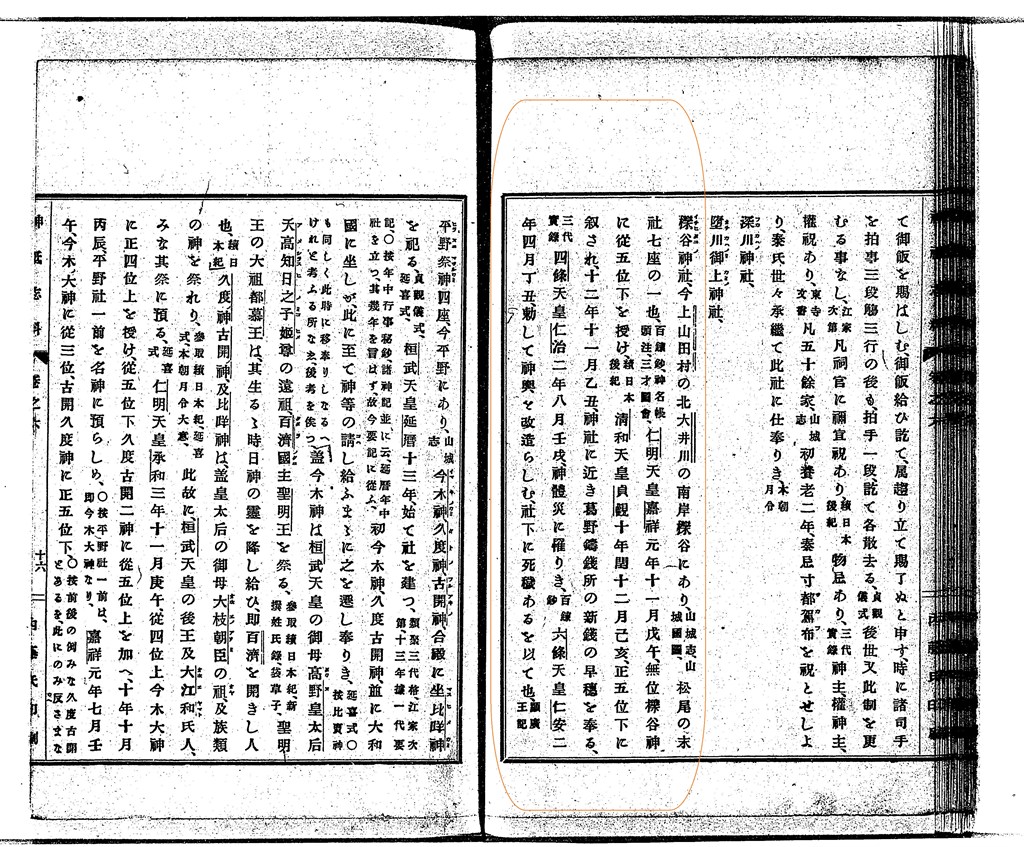 て御飯を賜はしむ、御飯給ひ訖て、属趨り立て賜了ぬと申す、時に諸司手
を拍事三段觴三行の後も、拍手一段、訖て各散去る、貞觀儀式 後世又此制を更
むる事なし、江家次第 凡祠官に禰宜祝あり、續日本後紀 物忌あり、三代實錄 神主、權神主、
權祝あり、東寺文書 凡五十餘家、山城志 初養老二年、秦忌寸都駕布を祝とせしよ
り、秦氏世々承繼て此社に仕奉りき、本朝月令
深川神社、
墮川御上神社、
櫟谷神社、今上山田村の北大井川の南岸櫟谷にあり、山城志、山城國圖、 松尾の末
社七座の一也、百鍊鈔神名帳頭注、三才圖會、 仁明天皇嘉祥元年十一月戊午、無位櫟谷神
に從五位下を授け、續日本後紀 清和天皇貞觀十年閏十二月己亥、正五位下に
叙され、十二年十一月乙丑、神社に近き葛野鑄錢所の新錢の早穗を奉る、
三代實錄 四條天皇仁治二年八月壬戌、神體災に罹りき、百鍊鈔 六條天皇仁安二
年四月丁丑、勅して神輿を改造らしむ、社下に死穢あるを以て也、顯廣王記
平野祭神四座、今平野にあり、山城志 今木神久度神古開神、合殿に坐比咩神
を祀る、貞觀儀式、延喜式、 桓武天皇延曆十三年始て社を建つ、類聚三代格江家次第十三年據一代要
記、〇按年中行事秘鈔諸神記並に云、延曆年中社を立つ、其幾年を冒はず故今要記に從ふ、 初今木神、久度古開神、並に大和
國に坐しが、此に至て神等の請し給ふまゝに之を遷し奉りき、延喜式〇按比賣神
も同しく此時に移奉りしなるへけれと考ふる所な玄後考を俟つ 蓋今木神は桓武天皇の御母高野皇太后
天高知日之子姬尊の遠祖、百濟國主聖明王を祭る、參取續日本紀、新撰姓氏錄袋草子、 聖明
王の大祖都慕王は、其生るゝ時日神の靈を降し給ひ、卽百濟を開きし人
也、續日本紀 久度神古開神、及比咩神は、蓋皇太后の御母大枝朝臣の祖、及族類
の神を祭れり、參取續日本紀、延喜式、本朝月令大意、 此故に桓武天皇の後王及大江和氏人、
みな其祭に預る、延喜式 仁明天皇承和三年十一月庚午、從四位上今木大神
に正四位上を授け、從五位下久度古開二神に從五位上を加へ、十年十月
丙辰、平野社一前を名神に預らしめ、〇按平野社一前は、卽今木大神なり、 嘉祥元年七月壬
午、今木大神に從三位、古開久度神に正五位下、〇按前後の例みな久度古開とあるを、此にのみ反さまな
神祇志料 卷之六 十六